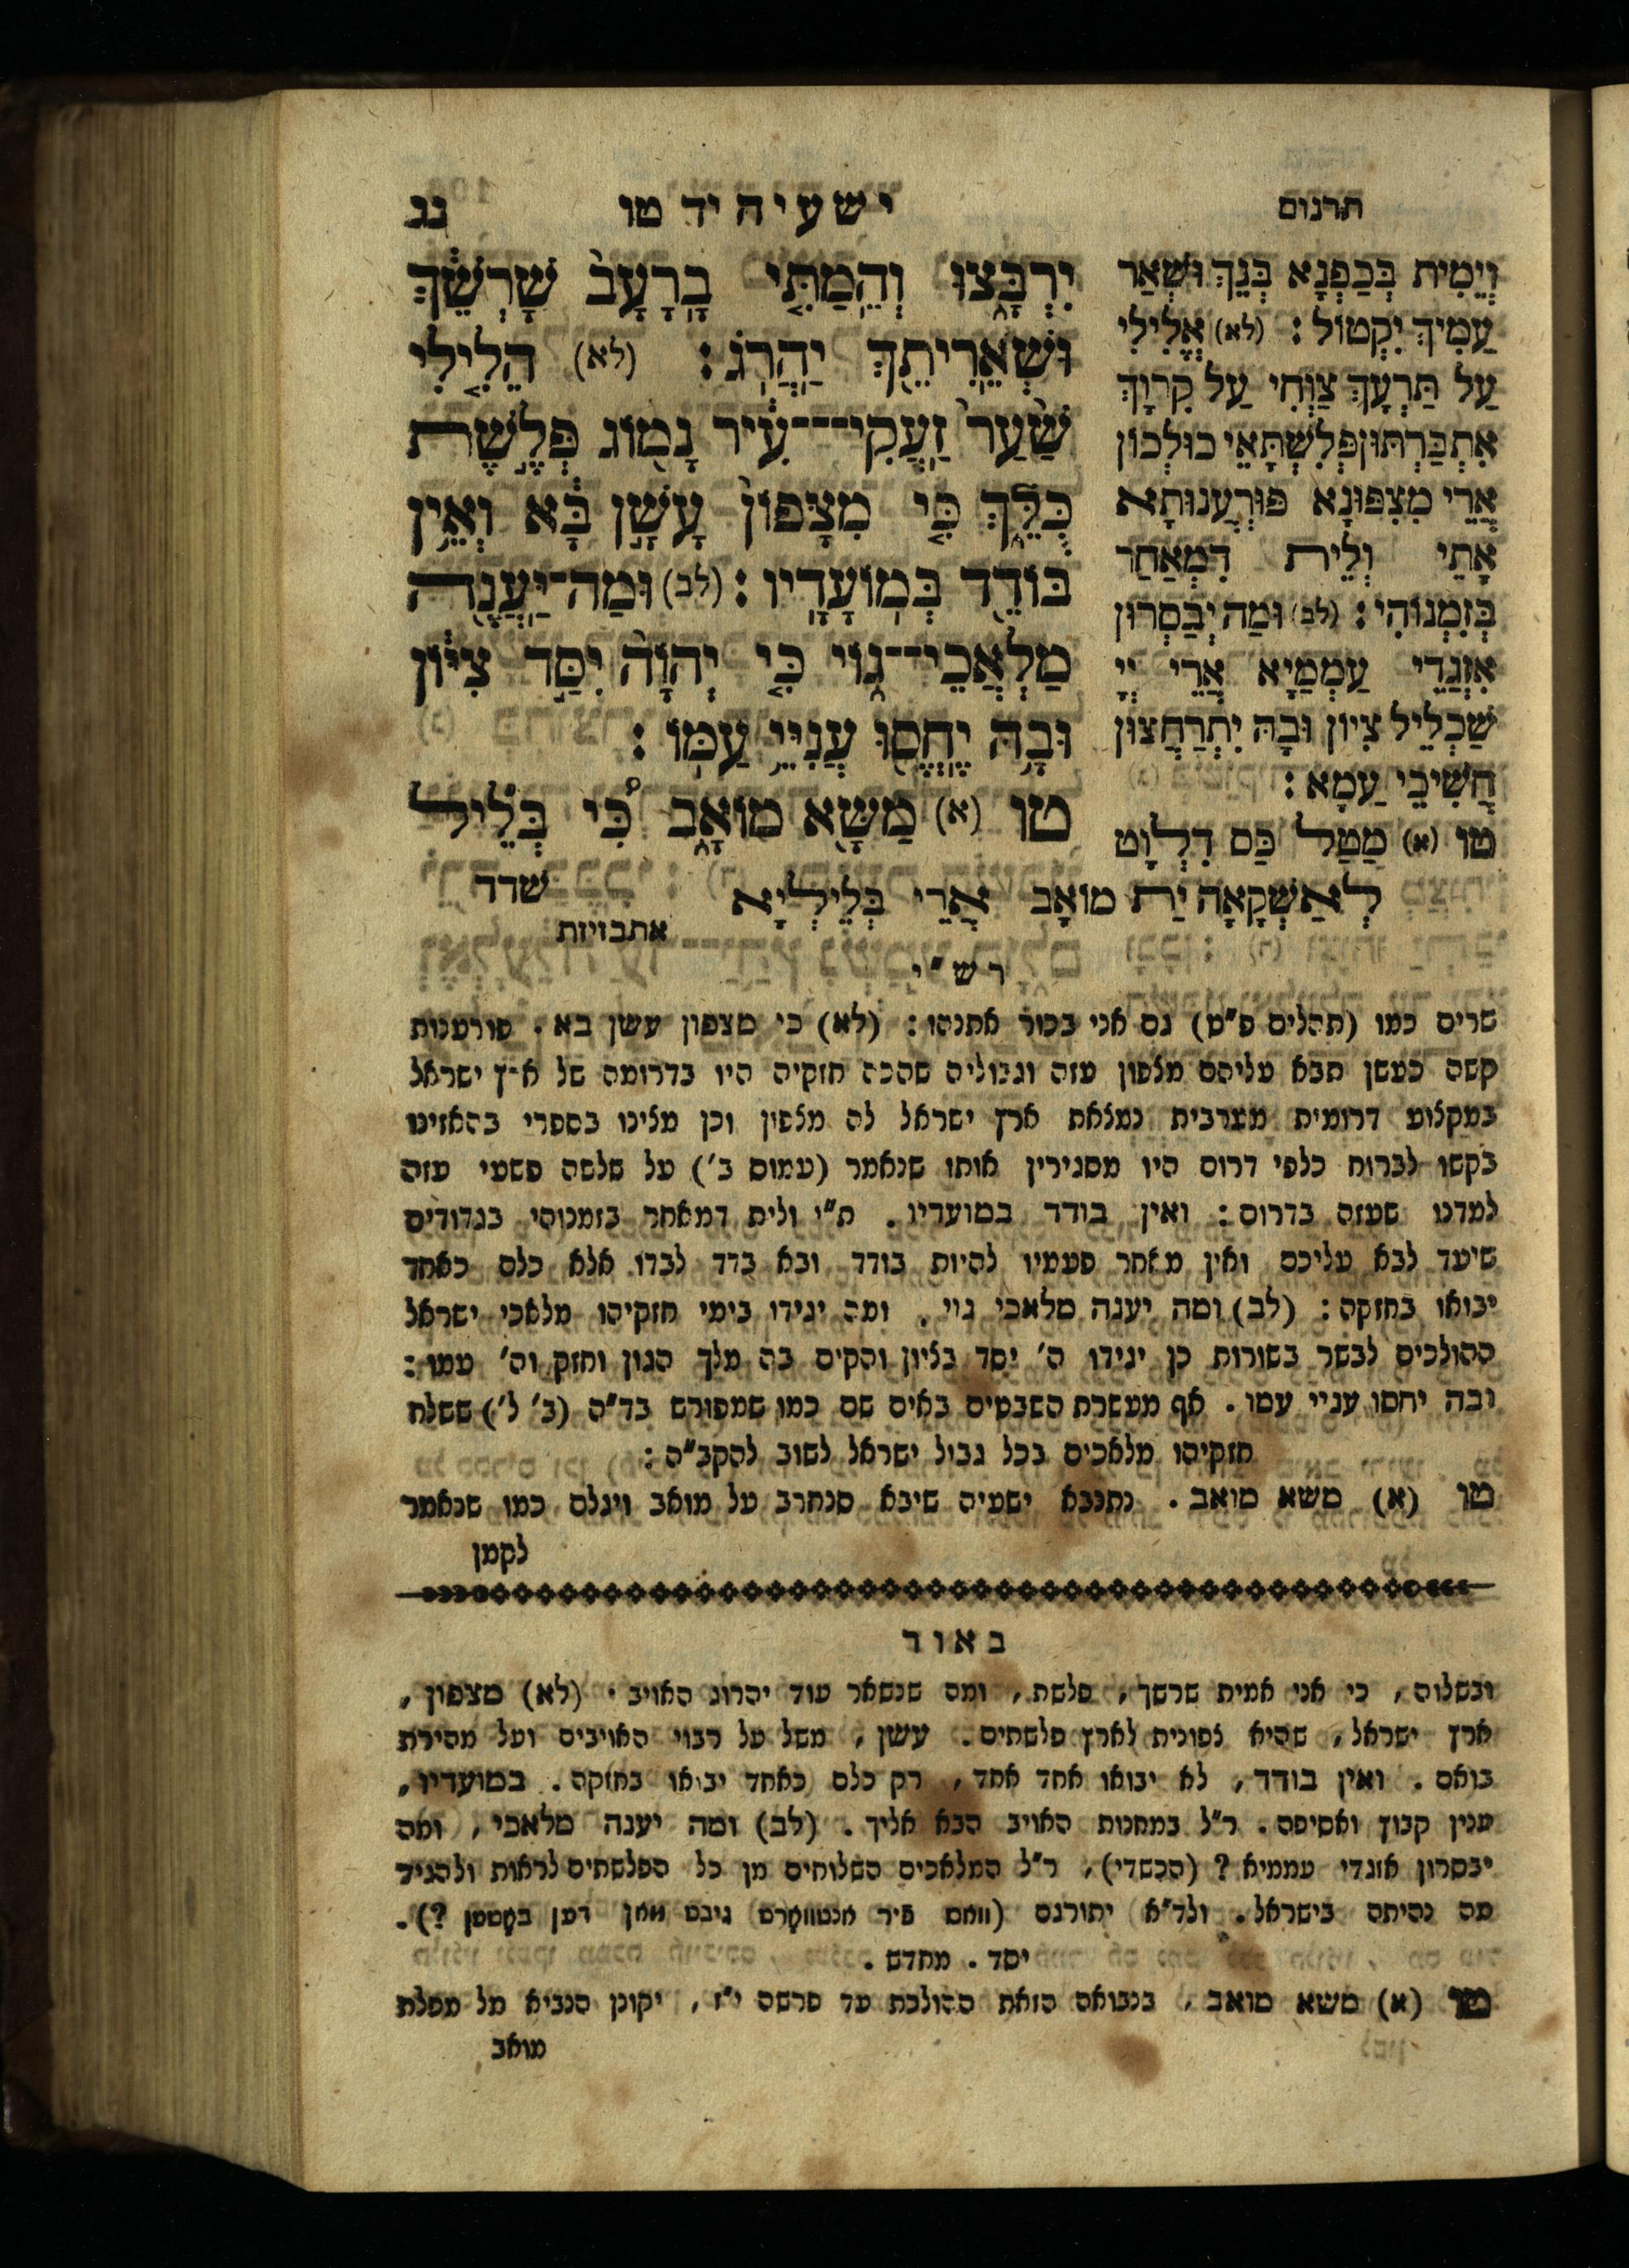 תרגום
ישעיה יד טו
נג
יִרְבָּצוּ וְהֵמַתִּי בָרָעָב שָׁרְשֵׁךְ
וּשְׁאֵרִיתֵךְ יַהֲרֹג: (לא) הֵלִילִי
שַׁעַר זַעֲקִי־־־עִיר נָמוֹג פְּלֶשֶׁת
כֻּלֵּךְ כִּי מִצָּפוֹן עָשָׁן בָּא וְאֵין
בּוֹדֵד בְּמוֹעָדָיו: (לב) וּמַה־יַּעֲנֶה
מַלְאֲכֵי־־גוֹי כִּי יְהוָה יִסַּד צִיּוֹן
וּבָהּ יֶחֱסוּ עֲנִיֵּי עַמּוֹ:
טו (א) מַשָּׂא מוֹאָב כִּי בְּלֵיל
שדד
וְיָמִית בְּכַפְנָא בְּנֵךְ וּשְׁאַר
עַמִיךְ יִקְטוֹל: (לא) אֱלִילִי
עַל תַּרְעָךְ צַוְּחִי עַל קִרְוָךְ
אִתְבַּרְתּוּן פְּלִשְׁתָּאֵי כּוּלְכוֹן
אֲרֵי מִצִפּוּנָא פּוּרְעֲנוּתָא
אָתֵי וְלֵית דִמְאַחַר
בְּזִמְנוֹהִי: (לב) וּמַה יְבַסְּרוּן
אִזְגַּדֵי עַמְמַיָא אֲרֵי יְיָ
שַׁכְלֵיל צִיוֹן וּבָהּ יִתְרַחֲצוּן
חֲשִׁיכֵי עַמָא:
טו (א) מַטַל כַּס דִלְוָט
לְאַשְׁקָאָה יַת מוֹאָב אֲרֵי בְּלֵילְיָא
אתבזיזת
רש״י
שרים כמו (תהלים פ״ט) גם אני בכור אתנהו: (לא) כי מצפון עשן בא. פורענות
קשה כעשן תבא עליהם מצפון עזה וגבוליה שהכה חזקיה היו בדרומה של א״ץ ישראל
במקצוע דרומית מערבית נמצאת ארץ ישראל לה מצפון וכן מצינו בספרי בהאזינו
בקשו לברוח כלפי דרום היו מסגירין אותו שנאמר (עמוס ב׳) על שלשה פשעי עזה
למדנו שעזה בדרום: ואין בודד במועדיו. ת״י ולית דמאחר בזמנוהי בגדודים
שיעד לבא עליכם ואין מאחר פעמיו להיות בודד ובא בדד לבדו אלא כלם כאחד
יבואו בחזקה: (לב) ומה יענה מלאכי גוי. ומה יגידו בימי חזקיהו מלאכי ישראל
ההולכים לבשר בשורות כן יגידו ה׳ יסד בציון והקים בה מלך הגון וחזק וה׳ עמו:
ובה יחסו עניי עמו. אף מעשרת השבטים באים שם כמו שמפורש בד״ה (ב׳ ל׳) ששלח
חזקיהו מלאכים בכל גבול ישראל לשוב להקב״ה:
טו (א) משא מואב. נתנבא ישעיה שיבא סנחרב על מואב ויגלם כמו שנאמר
לקמן
באור
ובשלוה, כי אני אמית שרשך, פלשת, ומה שנשאר עוד יהרוג האויב. (לא) מצפון,
ארץ ישראל, שהיא צפונית לארץ פלשתים. עשן, משל על רבוי האויבים ועל מהירת
בואם. ואין בודד, לא יבואו אחד אחד, רק כלם כאחד יבואו בחזקה. במועדיו,
ענין קבוץ ואסיפה. ר״ל במחנות האויב הבא אליך. (לב) ומה יענה מלאכי, ומה
יבסרון אזגדי עממיא? (הכשדי), ר״ל המלאכים השלוחים מן כל הפלשתים לראות ולהגיד
מה נהיתה בישראל. ולד״א יתורגם (וואס פיר אנטווארט גיבט מאן דען באטען?).
יסד. מחדש.
טו (א) משא מואב, בנבואה הזאת ההולכת עד פרשה י״ז, יקונן הנביא על מפלת
מואב